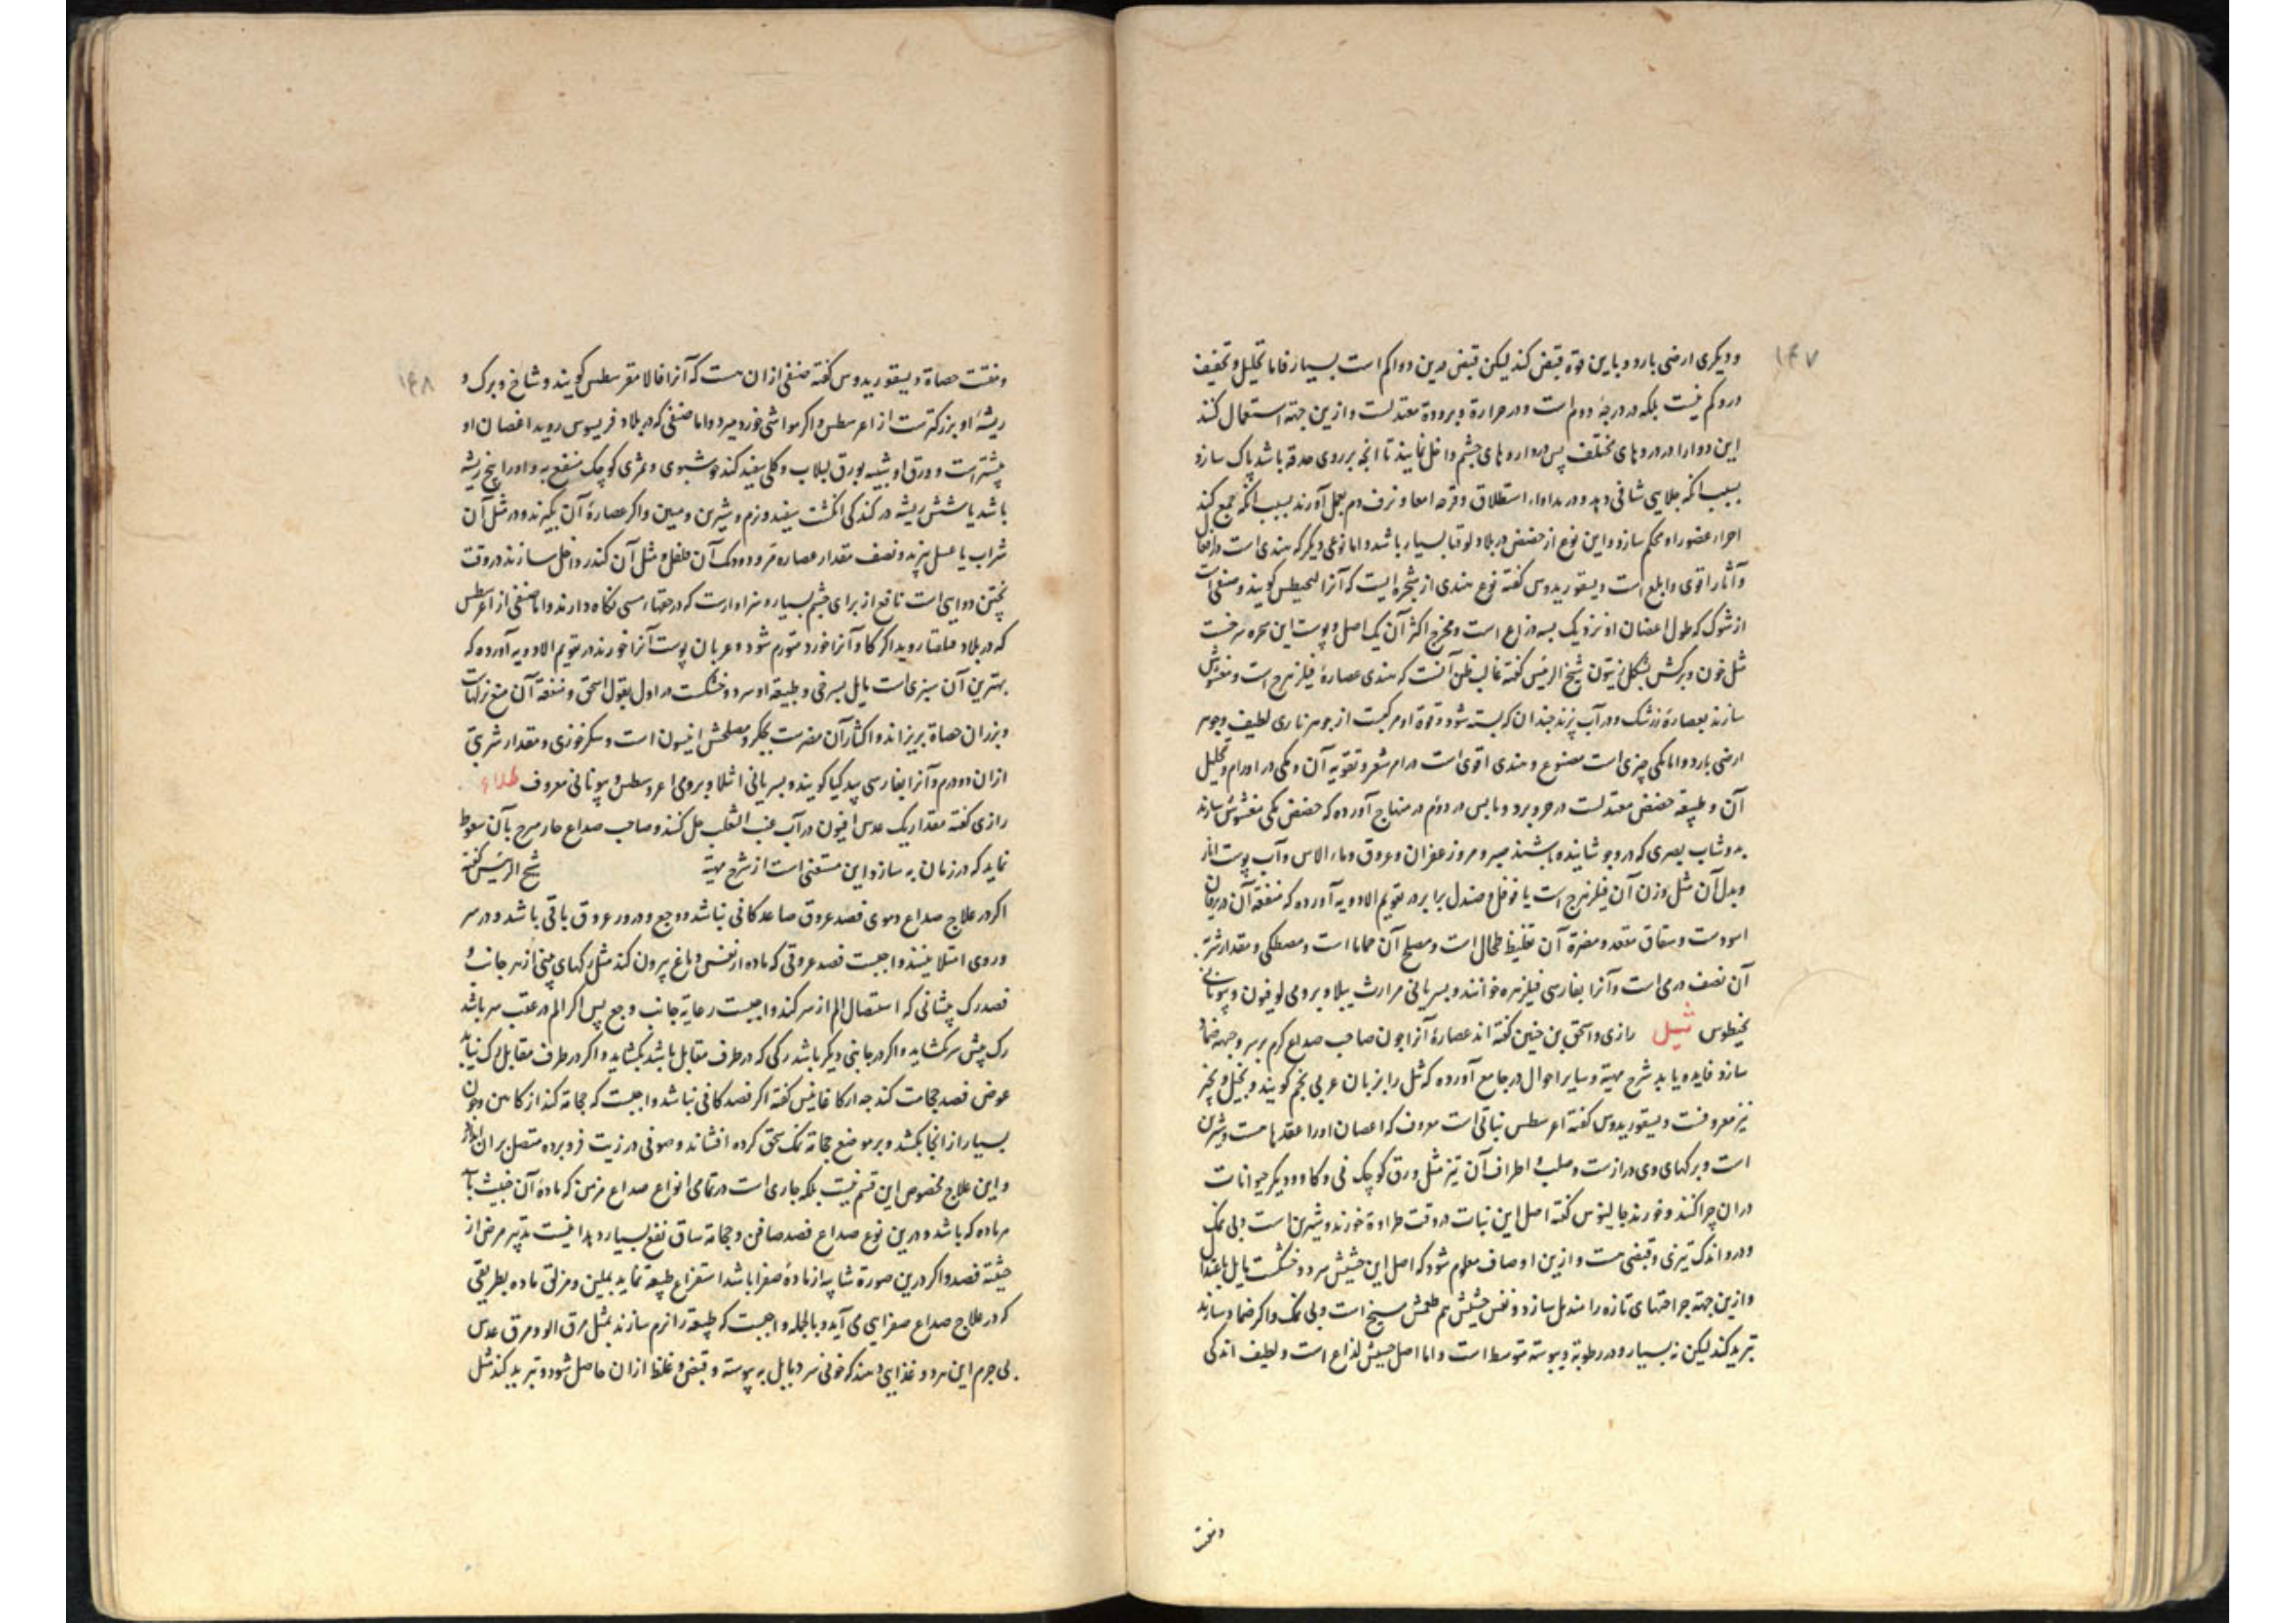 ۱۴۷
و دیکری ارضی بارد و باین قوة قبض کند لیکن قبض درین دوا کم است بسیار فاما تحلیل و تجفیف
درو کم نیست بلکه در درجهٔ دوم است و در حرارة و برودة معتدلست و ازین جهته استعمال کنند
این دوا را در دردهای مختلف پس در داروهای چشم داخل نمایند تا انچه بر روی حدقه باشد پاک سازد
بسبب انکه جلایی شافی دهد و در مداواء استطلاق و قرحه امعا و نزف دم بعمل آورند بسبب انکه جمع کند
اجزاء عضو را و محکم سازد و این نوع از حضض در بلاد لوقیا بسیار باشد و اما نوعی دیکر که هندی است در افعال
و آثار اقوی و ابلغ است دیسقوریدوس کفته نوع هندی از شجره ایست که آنرا لنحیطس کویند و صنفی است
از شوک که طول اغصان او نزدیک بسه ذراع است و مخرج اکثر آن یک اصل و پوست این شجره سرخست
مثل خون و برکش بشکل زیتون شیخ الرئیس کفته غالب ظن آنست که هندی عصارهٔ فیلزهرج است و مغشوش
سازند بعصارهٔ زرشک و در آب پزند چندان که بسته شود و قوة او مرکبست از جوهر ناری لطیف و جوهر
ارضی بارد و اما مکی چیزی است مصنوع و هندی اقوی است در امر شعر و تقویة آن و مکی در اورام و تحلیل
آن و طبیعة حضض معتدلست در حر و برد و یابس در دوم در منهاج آورده که حضض مکی مغشوش سازند
بدوشاب بصری که درو جوشانیده باشند صبر و مر و زعفران و عروق و ماء الاس و آب پوست انار
و بدل آن مثل وزن آن فیلزهرج است یا فوفل و صندل برابر در تقویم الادویه آورده که منفعة آن در یرقان
اسودست و شقاق مقعد و مضرة آن تغلیظ طحال است و مصلح آن حماما است و مصطکی و مقدار شربة
آن نصف درمی است و آنرا بفارسی فیلزهره خوانند و بسریانی مرارث پیلا و برومی لوفیون و بیونانی
لنحیطوس ثیل رازی و اسحق بن حنین کفته اند عصارهٔ آنرا چون صاحب صداع کرم بر سر و جبهه ضماد
سازد فایده یابد شرح مهیة و سایر احوال در جامع آورده که ثل را بزبان عربی نجم کویند و نجیل و نجیر
نیز معروفست دیسقوریدوس کفته اعرسطس نباتی است معروف که اغصان او را عقدهاست و شیرین
است و برکهای وی درازست و صلب و اطراف آن تیز مثل ورق کوچک نی و کاو و دیکر حیوانات
دران چرا کنند و خورند جالینوس کفته اصل این نبات در وقت طراوة خورند و شیرین است و بی نمک
و درو اندک تیزی و قبضی هست و ازین اوصاف معلوم شود که اصل این حشیش سرد و خشکست مایل باعتدال
و ازین جهته جراحتهای تازه را مندمل سازد و نفس حشیش هم طعمش مسیخ است و بی نمک و اکر ضماد سازند
تبرید کند لیکن نه بسیار و در رطوبة و یبوسة متوسط است و اما اصل حشیش لذاع است و لطیف اندکی
۱۴۸
و مفتت حصاة دیسقوریدوس کفته صنفی ازان هست که آنرا فالامقرسطس کویند و شاخ و برک و
ریشهٔ او بزرکترست از اعرسطس و اکر مواشی خورد میرد و اما صنفی که در بلاد فریسوس روید اغصان او
بیشترست و ورق او شبیه بورق لبلاب و کلی سفید کند خوشبوی و ثمری کوچک منتفع به و او را پنج ریشه
باشد یا شش ریشه در کندکی انکشت سفید و نرم و شیرین و مبین و اکر عصارهٔ آن بکیرند و در مثل آن
شراب یا عسل پزند و نصف مقدار عصاره مر و ده یک آن فلفل و مثل آن کندر داخل سازند در وقت
پختن دوایی است نافع از برای چشم بسیار و سزاوارست که در حقهٔ مسی نکاه دارند و اما صنفی از اعرسطس
که در بلاد قلقیا روید اکر کاو آنرا خورد متورم شود و عربان پوست آنرا خورند در تقویم الادویه آورده که
بهترین آن سبزی است مایل بسرخی و طبیعة او سرد و خشکست در اول بقول اسحق و منفعة آن منع نزلهاست
و بزر ان حصاة بریزاند و اکثار آن مضرست بجکر و مصلحش انیسون است و سکر خوزی و مقدار شربتی
ازان دو درم و آنرا بفارسی بید کیا کویند و بسریانی اثلا و برومی اعروسطس و بیونانی معروف طلاء
رازی کفته مقدار یک عدس افیون در آب عنب الثعلب حل کنند و صاحب صداع حار مبرح بآن سعوط
نماید که در زمان به سازد و این مستغنی است از شرح مهیة شیخ الرئیس کفته
اکر در علاج صداع دموی فصد عروق صاعد کافی نباشد و وجع و درور عروق باقی باشد و در سر
و روی امتلا بینند واجبست فصد عروقی که ماده از نفس دماغ بیرون کند مثل رکهای بینی از هر جانب و
فصد رک پیشانی که استیصال الم از سر کند و واجبست رعایة جانب وجع پس اکر الم در عقب سر باشد
رک پیش سر بکشاید و اکر در جانبی دیکر باشد رکی که در طرف مقابل باشد بکشاید و اکر در طرف مقابل رک نیابد
عوض فصد حجامت کند چه ارکاغانیس کفته اکر فصد کافی نباشد واجبست که حجامة کند از کاهل و خون
بسیار از انجا بکشد و بر موضع حجامة نمک سحق کرده افشاند و صوفی در زیت فرو برده متصل بران اندازد
و این علاج مخصوص این قسم نیست بلکه جاری است در تمامی انواع صداع مزمن که مادهٔ آن خبیث با
هر ماده که باشد و درین نوع صداع فصد صافن و حجامة ساق نفع بسیار دهد اینست تدبیر مرض از
حیثیة فصد و اکر درین صورة شایبه از مادهٔ صفرا باشد استفراغ طبیعة نماید بملین و مزلق ماده بطریقی
که در علاج صداع صفرایی می آید و بالجمله واجبست که طبیعة را نرم سازند بمثل مرق الو و مرق عدس
بی جرم این هر دو و غذایی دهند که خونی سرد مایل به یبوسة و قبض و غلظ ازان حاصل شود و تبرید کند مثل